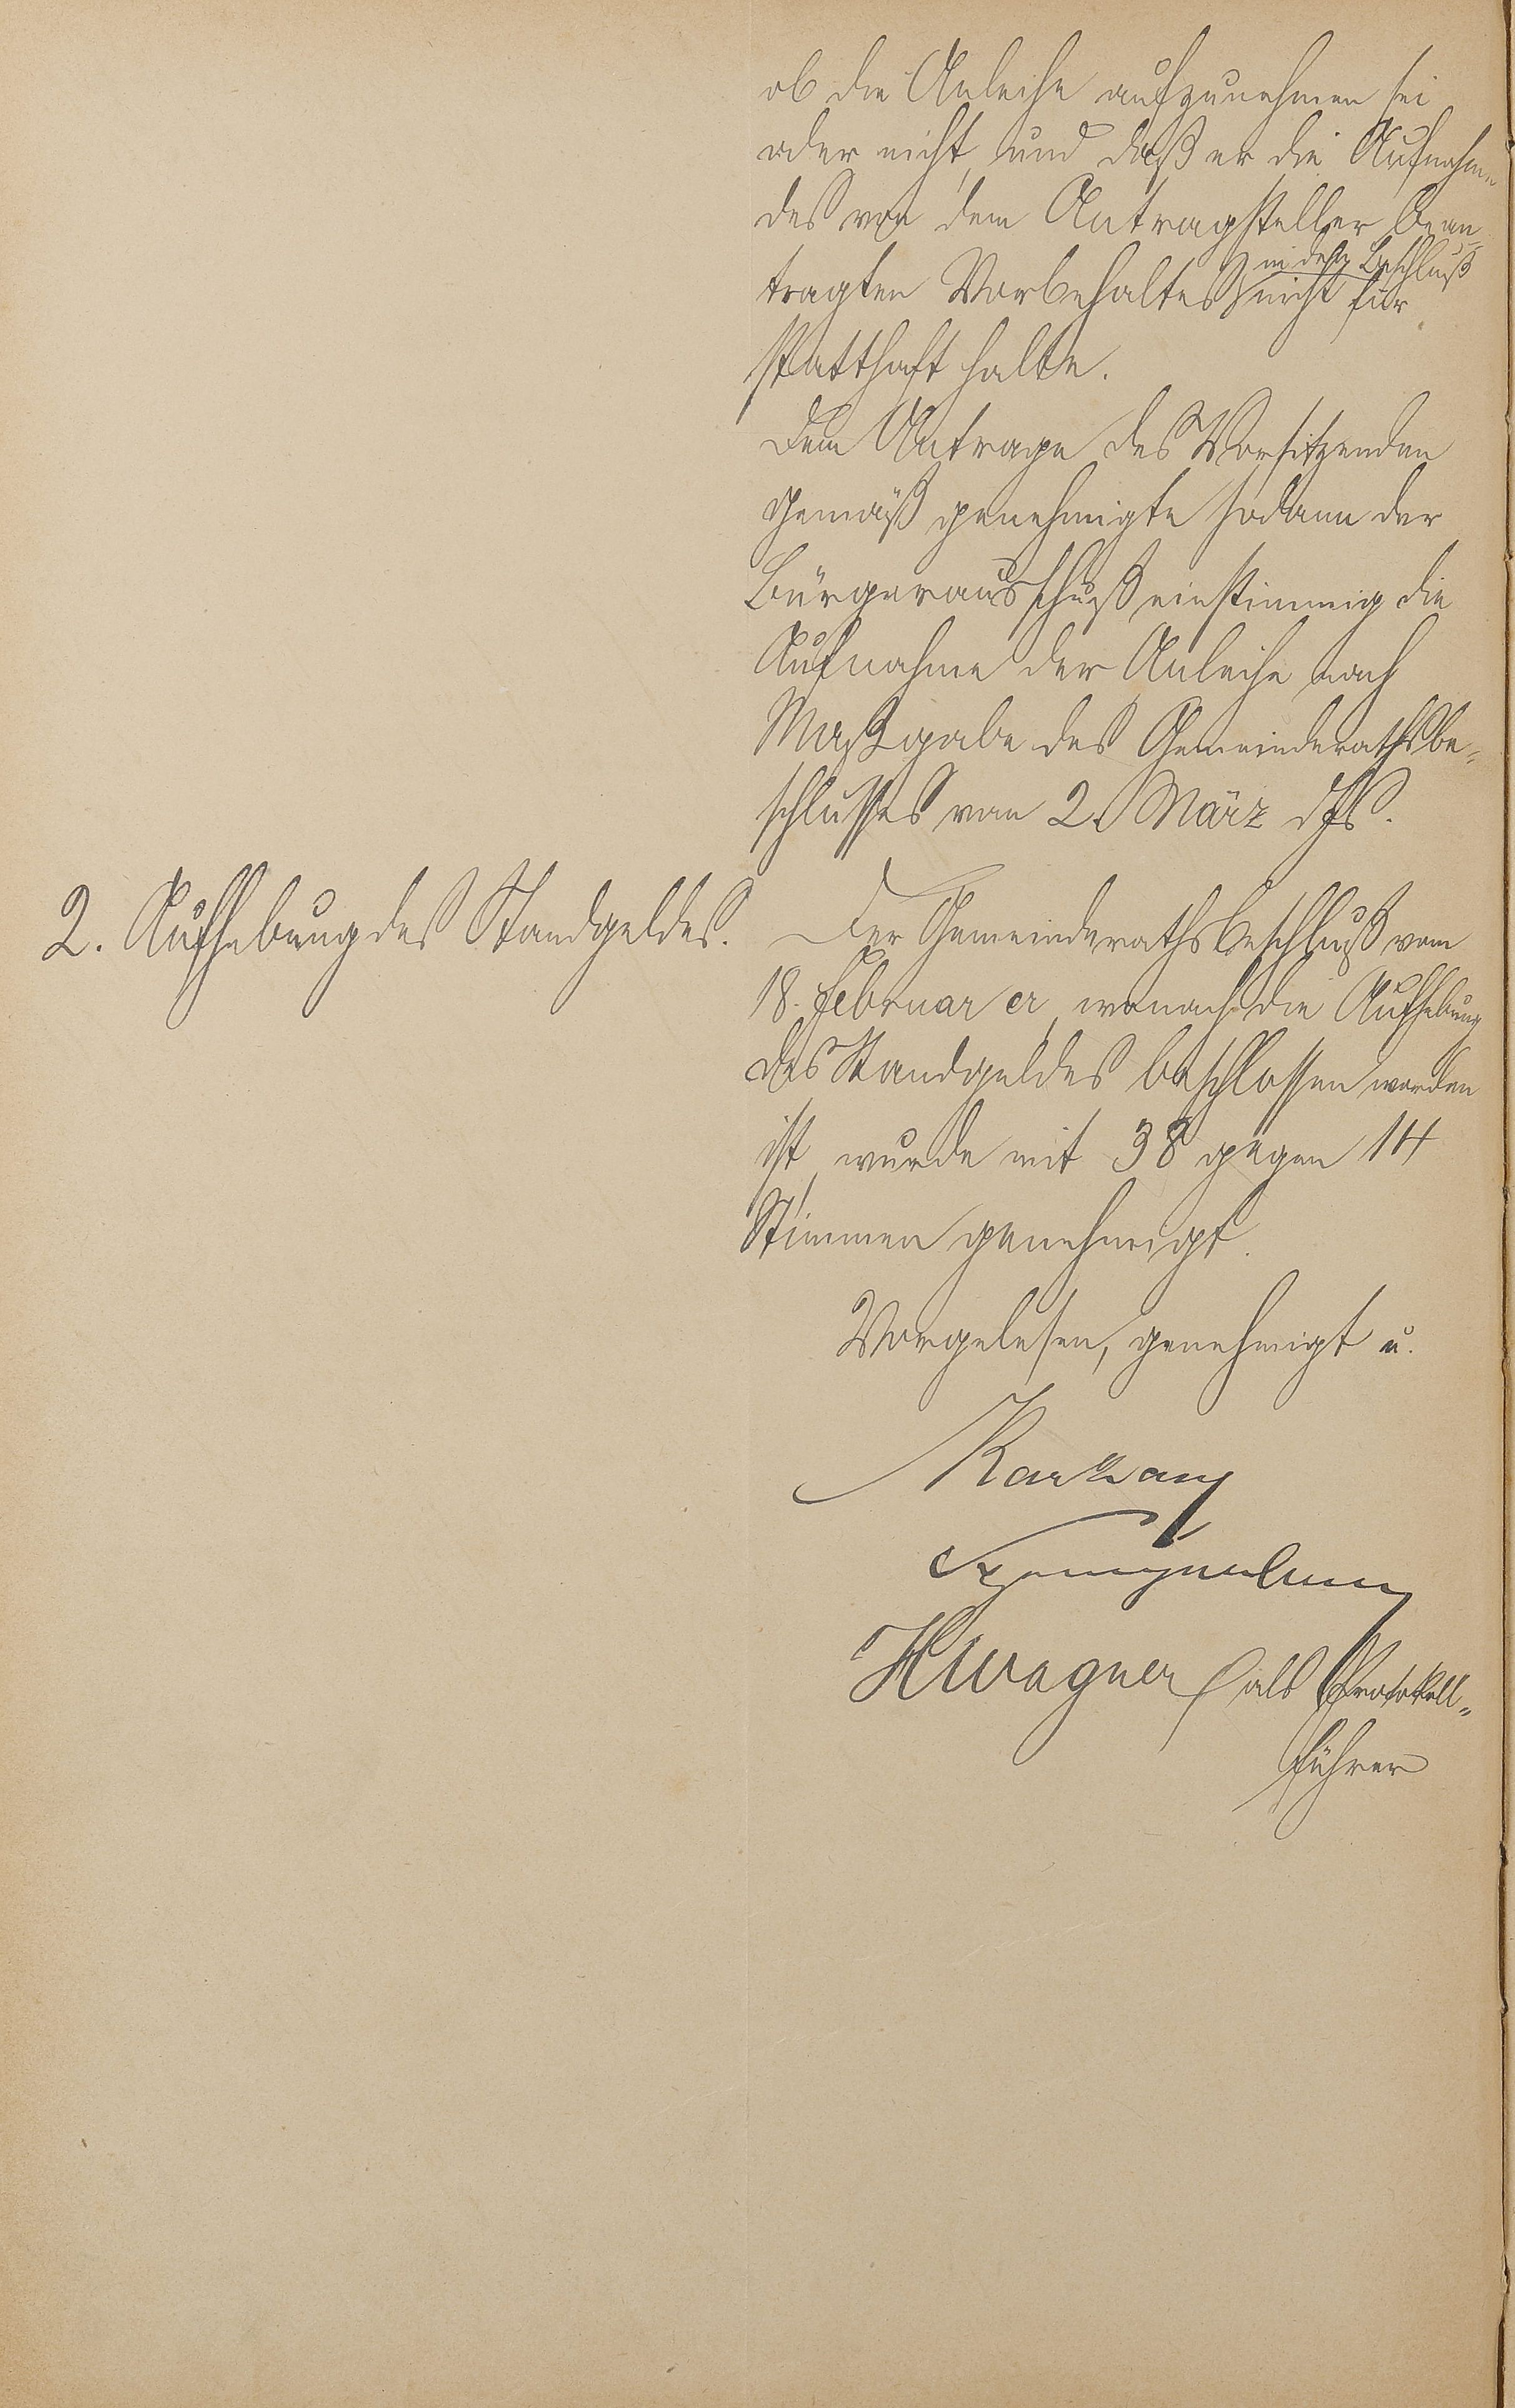 ob die Anleihe aufzunehmen sei
oder nicht, und daß er die Aufnahme
des von dem Antragsteller bean-
in den Beschluß
tragten Vorbehaltes nicht für
statthaft halte.
Dem Antrage des Vorsitzenden
gemäß genehmigte sodann der
Bürgerausschuß einstimmig die
Aufnahme der Anleihe nach
Maßgabe des Gemeinderathsbe-
schlusses vom 2. März ds Js.
2. Aufhebung des Standgeldes.
Der Gemeinderathsbeschluß vom
18. Februar cr, wonach die Aufhebung
des Standgeldes beschlossen worden
ist, wurde mit 38 gegen 14
Stimmen genehmigt.
Vorgelesen, genehmigt u.
HWagner als Protokoll-
führer